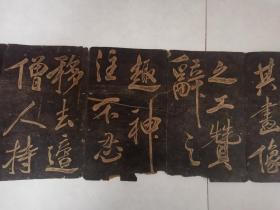 其畫像
之工贊
辭之
趣神
注不忍
移去適
僧人持